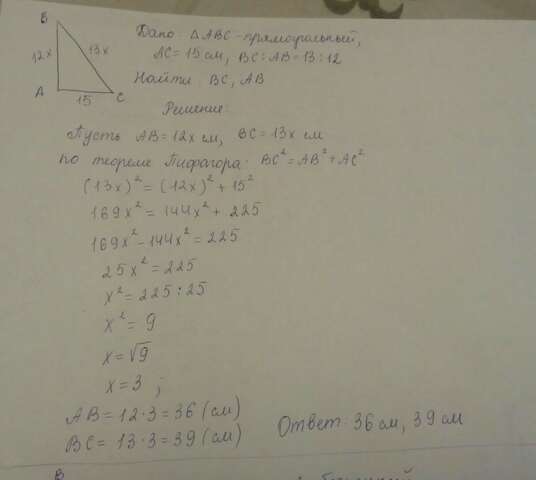 B
12x
13x
A
15
C
Дано △ABC-прямоугольный,
AC=15 см, BC:AB=13:12
Найти: BC, AB
Решение:
Пусть AB=12x см, BC=13x см
По теореме Пифагора: BC²=AB²+AC²
(13x)²=(12x)²+15²
169x²=144x²+225
169x²-144x²=225
25x²=225
x²=225:25
x²=9
x=√9
x=3;
AB=12·3=36(см)
BC=13·3=39(см)
Ответ: 36 см, 39 см
B